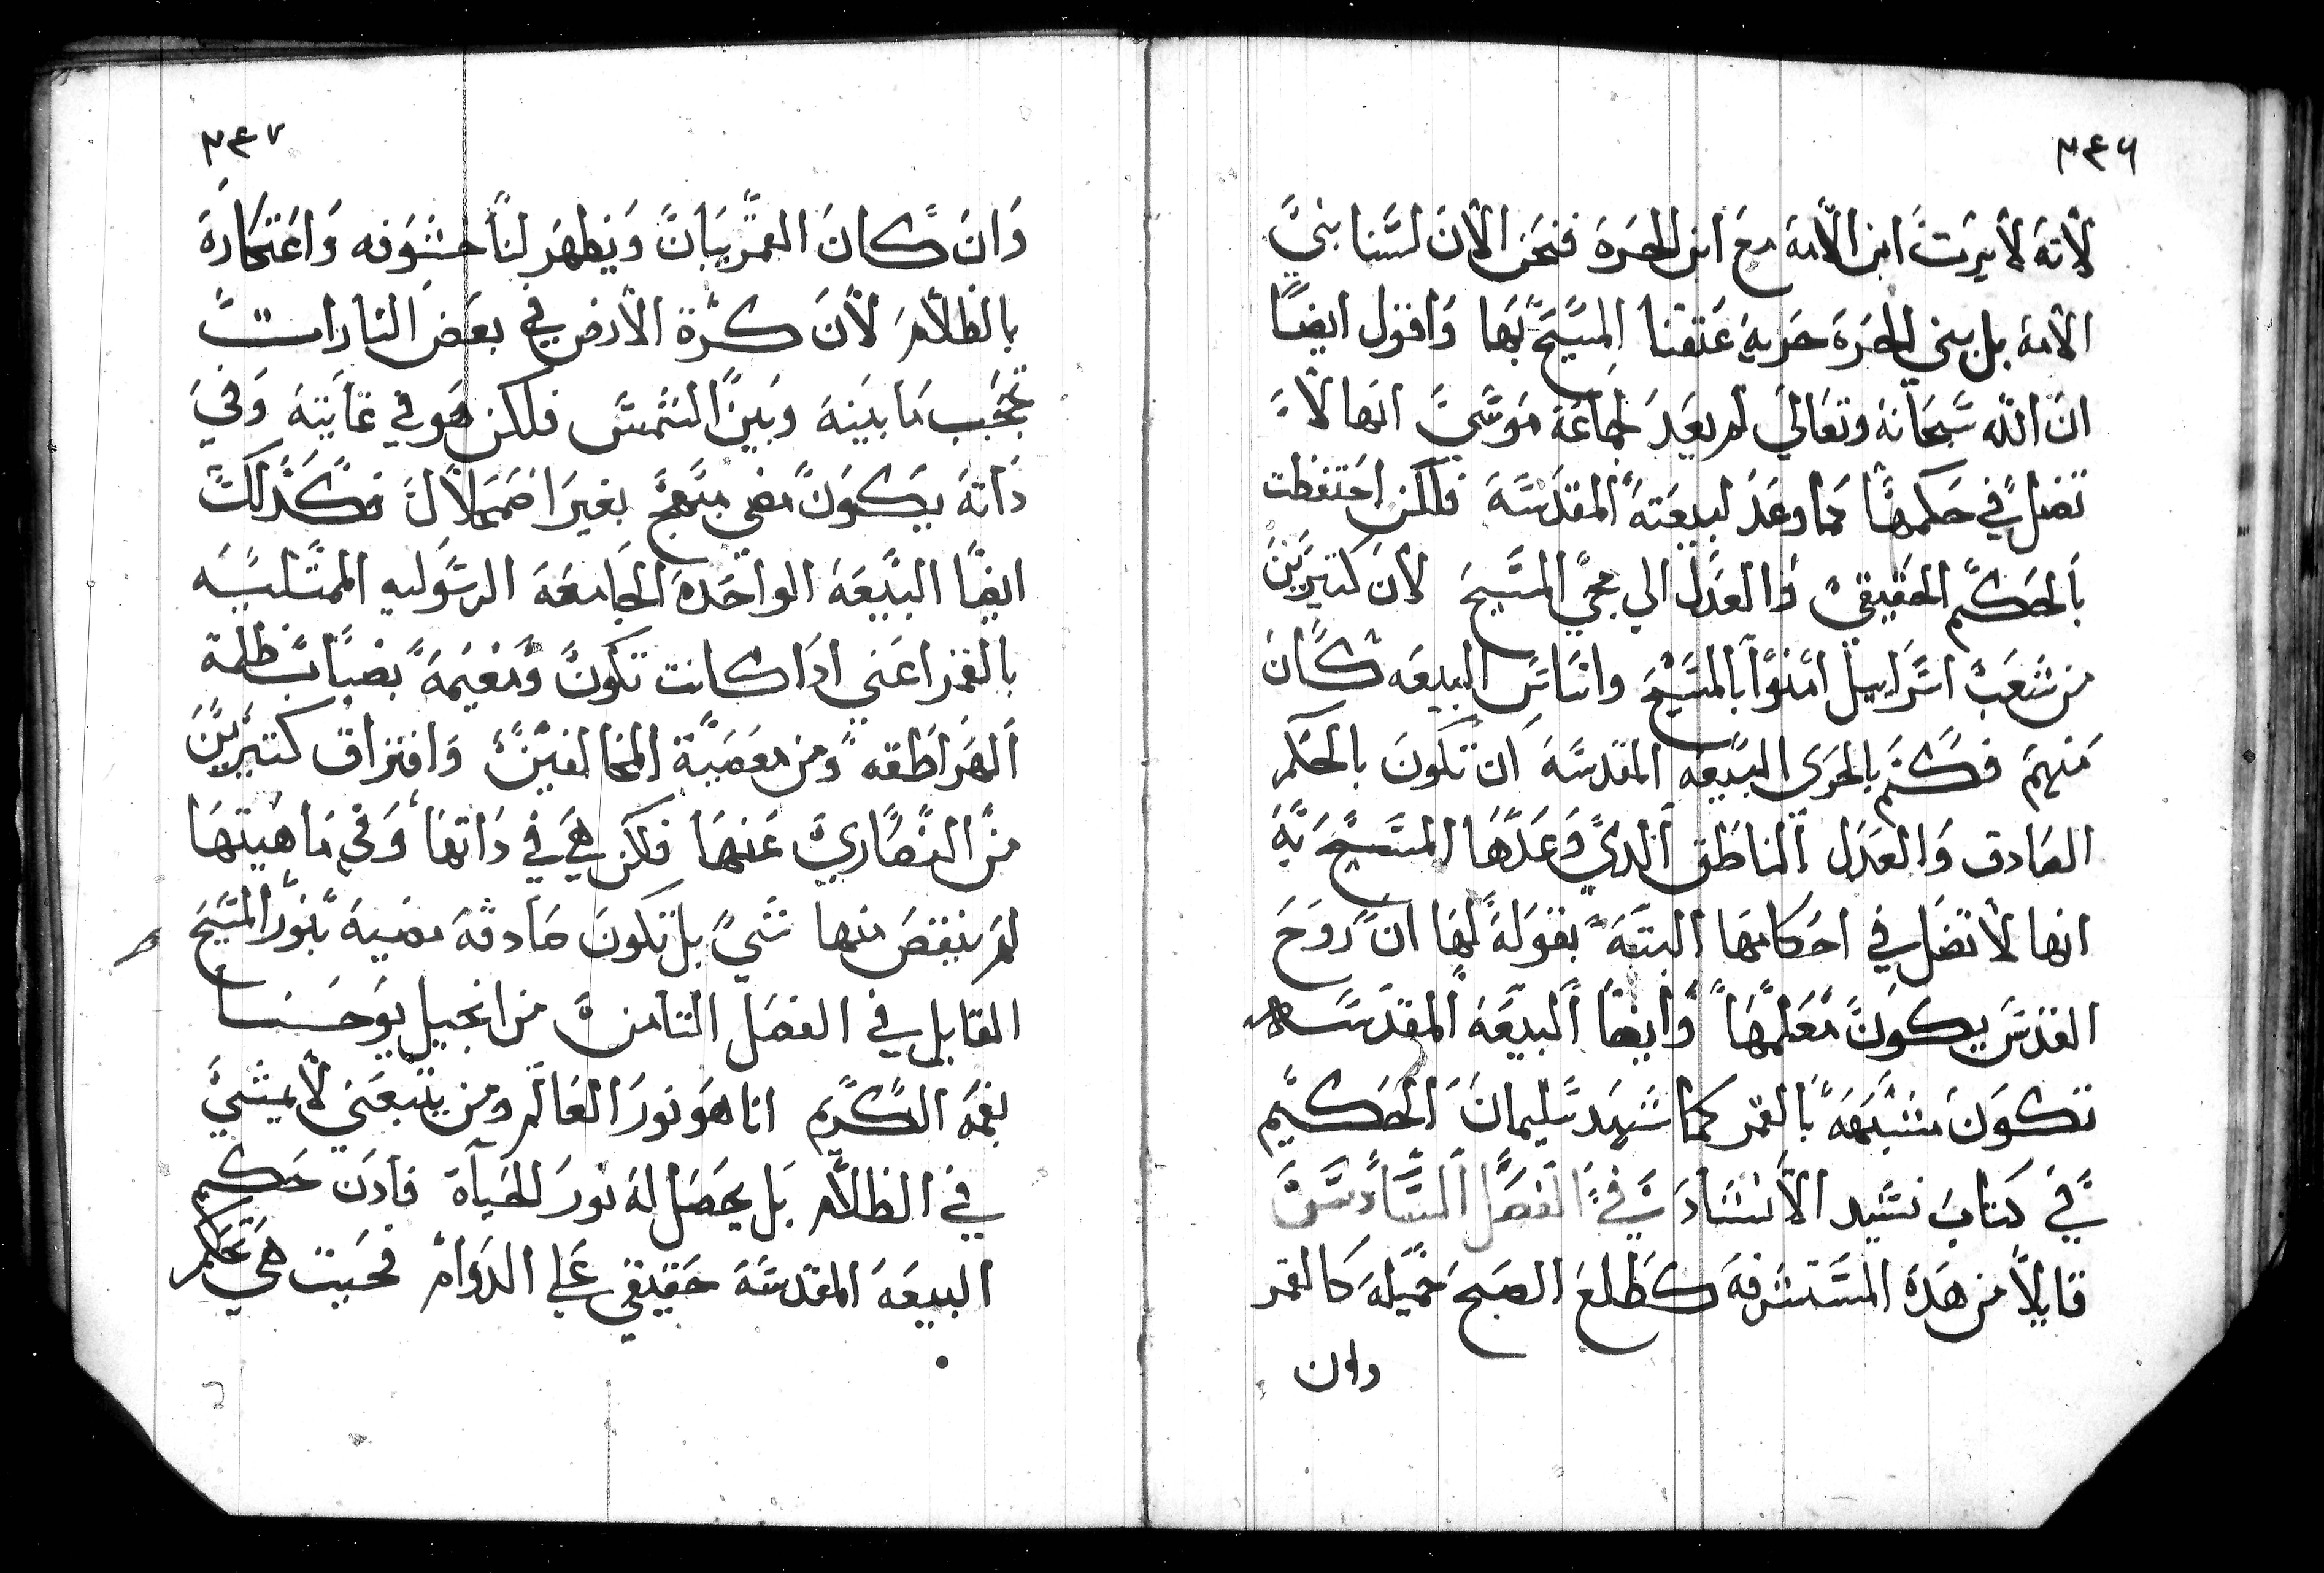 ٣٤٦
لأنه لا يرث ابن الأمة مع ابن الحرة فنحن الان لسنا بني
الأمة بل بني الحرة حرية عتقنا المسيح بها واقول ايضا
ان الله سبحانه وتعالي لم يعد جماعة موسي انها لا
تضل في حكمها كما وعد لبيعته المقدسة فلكن احتفظت
بالحكم الحقيقي والعدل الي مجي المسيح لان كثيرين
من شعب اسراييل امنوا بالمسيح واساس البيعه كان
منهم فكم بالحري البيعه المقدسة ان تكون بالحكم
الصادق والعدل الناطق الدي وعدها المسيح به
انها لا تضل في احكامها البتة بقوله لها ان روح
القدس يكون معلمها وايضا البيعه المقدسه
تكون مشبهه بالقمر كما شهد سليمان الحكيم
في كتاب نشيد الانشاد في الفصل السادس
قايلا من هده المستشرفه كطلع الصبح جميله كالقمر
وان
٣٤٧
وان كان القمر يبان ويظهر لنا خسوفه واعتكاره
بالظلام لان كرة الارض في بعض التارات
تحجب ما بينه وبين الشمس فلكن هو في غايته وفي
داته يكون مضي مبهج بغير اضمحلال فكدلك
ايضا البيعه الواحدة الجامعة الرسوليه الممثلسه
بالقمر اعني ادا كانت تكون ومغيمه بضباب ظلمة
الهراطقه ومن معصية المخالفين وافتراق كثيرين
من النصاري عنها فلكن هي في داتها وفي ماهيتها
لم ينقص منها شي بل تكون صادقة مضية بنور المسيح
القايل في الفصل الثامن من انجيل يوحنا
بفمه الكريم انا هو نور العالم ومن يتبعني لا يمشي
في الظلام بل يحصل له نور الحياة فادن حكم
البيعه المقدسة حقيقي علي الدوام فحيث هي تحكم